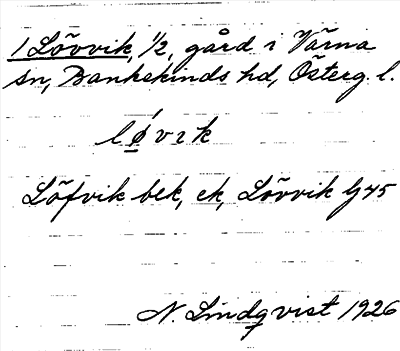 1 Lövvik, 1/2, gård i Värna
sn, Bankekinds hd, Österg. l.
lǿvɩk
Löfvik bek, ek, Lövvik G45
N. Lindqvist 1926